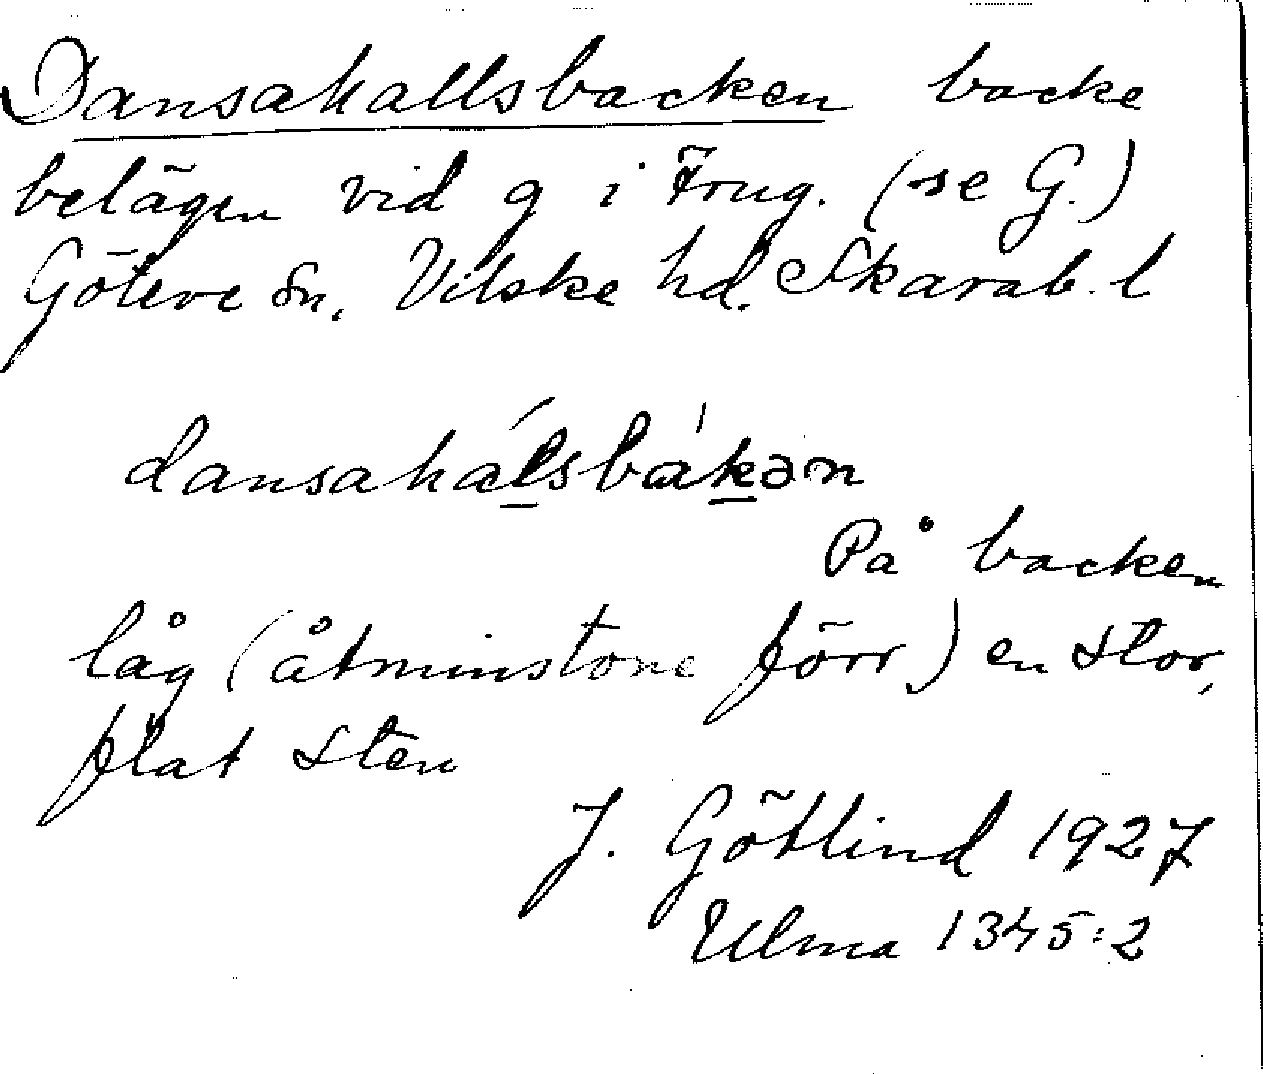 Dansahallsbacken backe
belägen vid g i Frug. (se G.)
Göteve sn, Vilske hd. Skarab. l
dansahálsbákən
På backen
låg (åtminstone förr) en stor,
flat sten
J. Götlind 1927
Ulma 1345:2